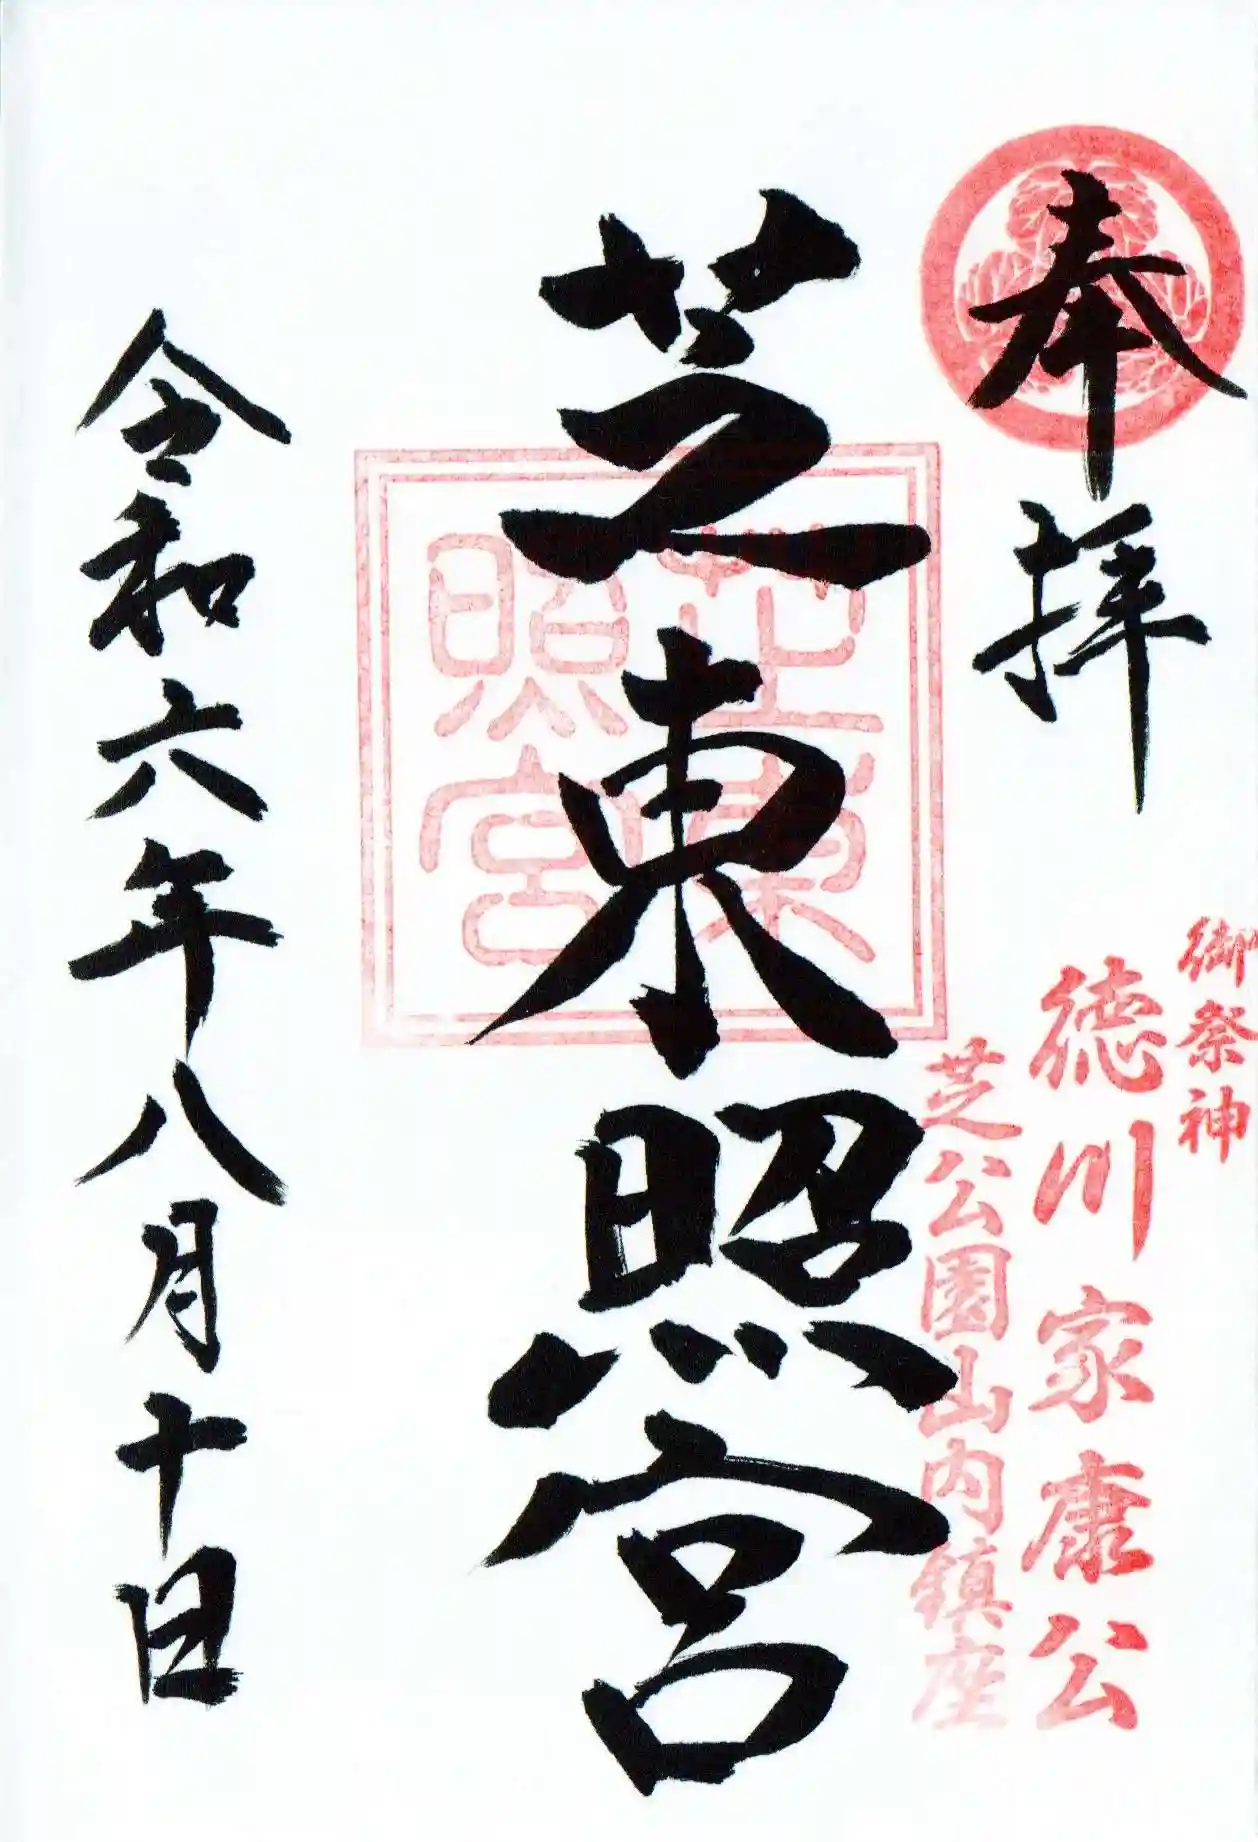 奉拝
御祭神
徳川家康公
芝公園山内鎮座
芝東照宮
芝東
照宮
令和六年八月十日